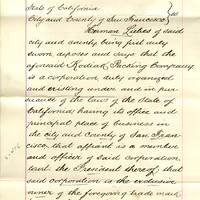 State of California
City and County of San Francisco } ss
Herman Liebes of said
city and county being first duly
sworn deposes and says that the
aforesaid Kodiak Packing Company
is a corporation duly organized
and existing under and in pursu-
ance of the laws of the State of
California having its office and
principal place of business in
the city and county of San Fran-
cisco, that affiant is a member
and officer of said corporation
to wit the President thereof, that
said corporation is the exclusive
owner of the foregoing trade mark